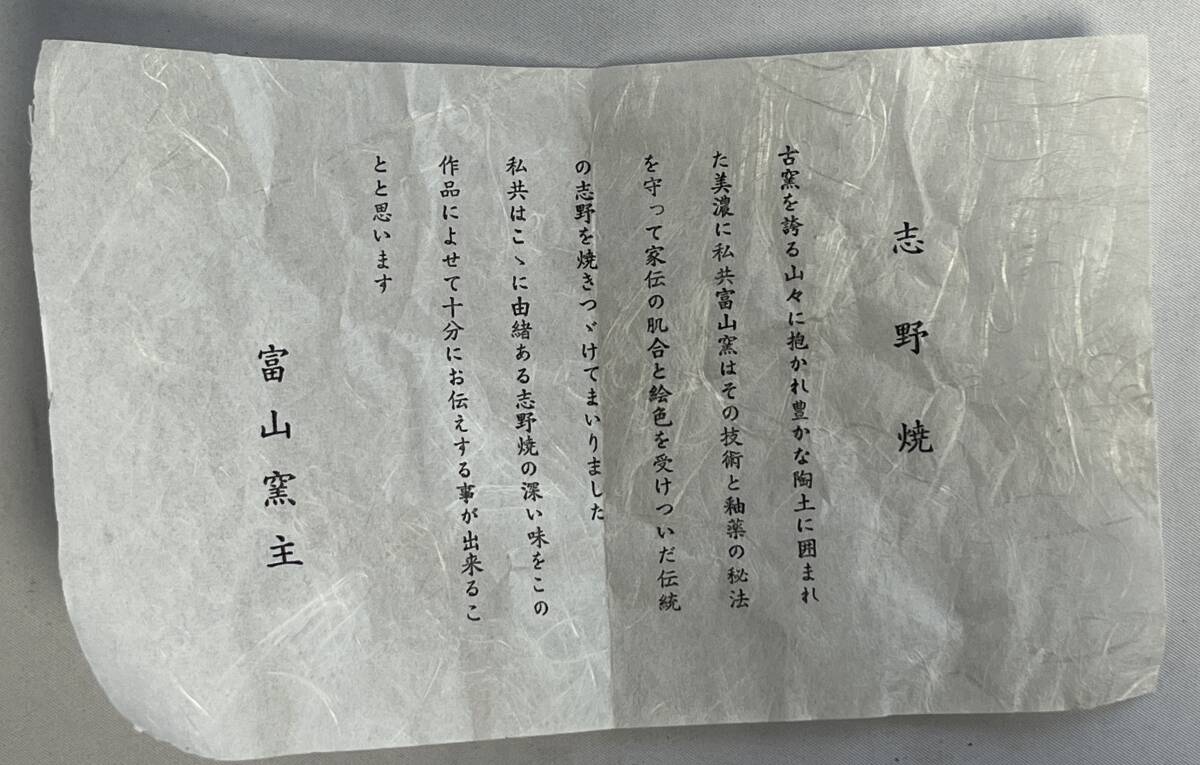 志野焼
古窯を誇る山々に抱かれ豊かな陶土に囲まれ
た美濃に私共富山窯はその技術と釉薬の秘法
を守って家伝の肌合と絵色を受けついだ伝統
の志野を焼きつゞけてまいりました
私共はこゝに由緒ある志野焼の深い味をこの
作品によせて十分にお伝えする事が出来るこ
とと思います
富山窯主